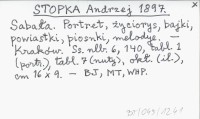 STOPKA Andrzej 1897.
Sabała. Portret, życiorys, bajki,
powiastki, piosnki, melodye. —
Kraków. Ss. nlb. 6, 140, tabl. 1
(portr.), tabl. 7 (nuty), okł. (il.),
cm 16 x 9. — BJ, MT, WHP.